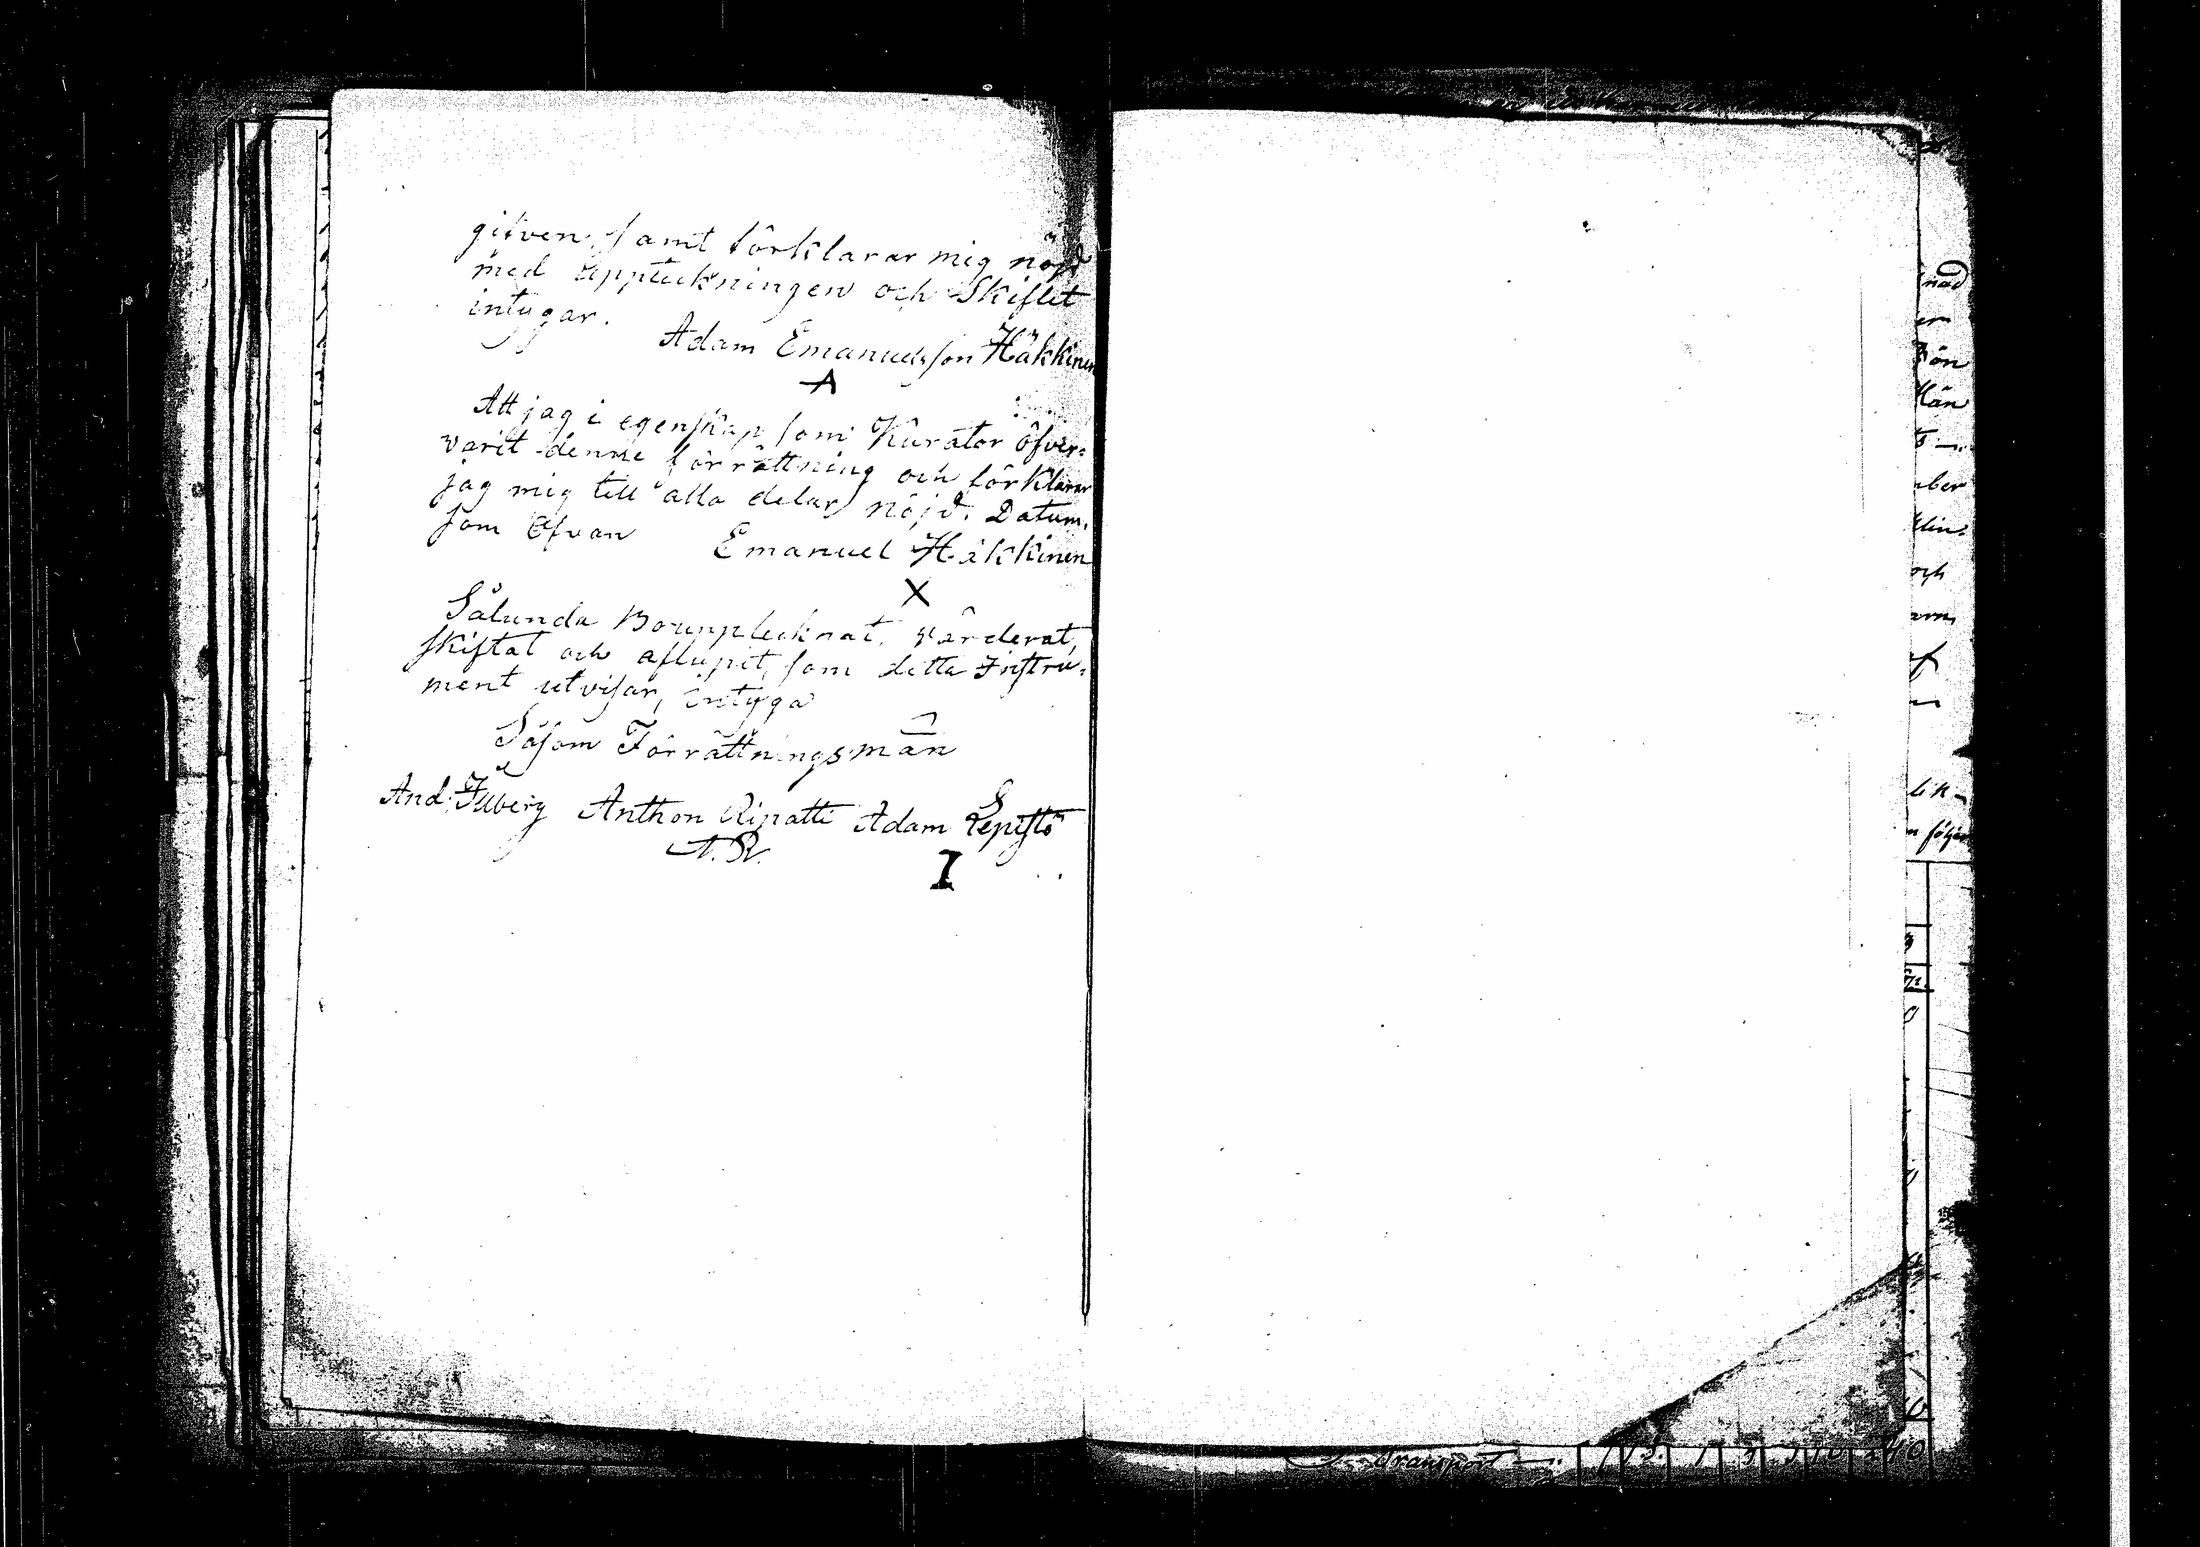 gifven, samt förklarar mig nöjd
med uppteckningen och Skiftet
intygar.
Adam Emanuelsson Häkkinen
A
Att jag i egenskap som Kurator öfver=
varit denne förrättning och förklarar
jag mig till alla delar nöjd. Datum.
som Ofvan Emanuel Häkkinen
X
Sålunda Boupptecknat, värderat,
skiftat och aflupit, som detta Instru=
ment utvisar, intyga
Såsom Förrättningsmän
And. Anthon Ripatti Adam Lepistö
A. R.
I
nad
er
och
af
Transport